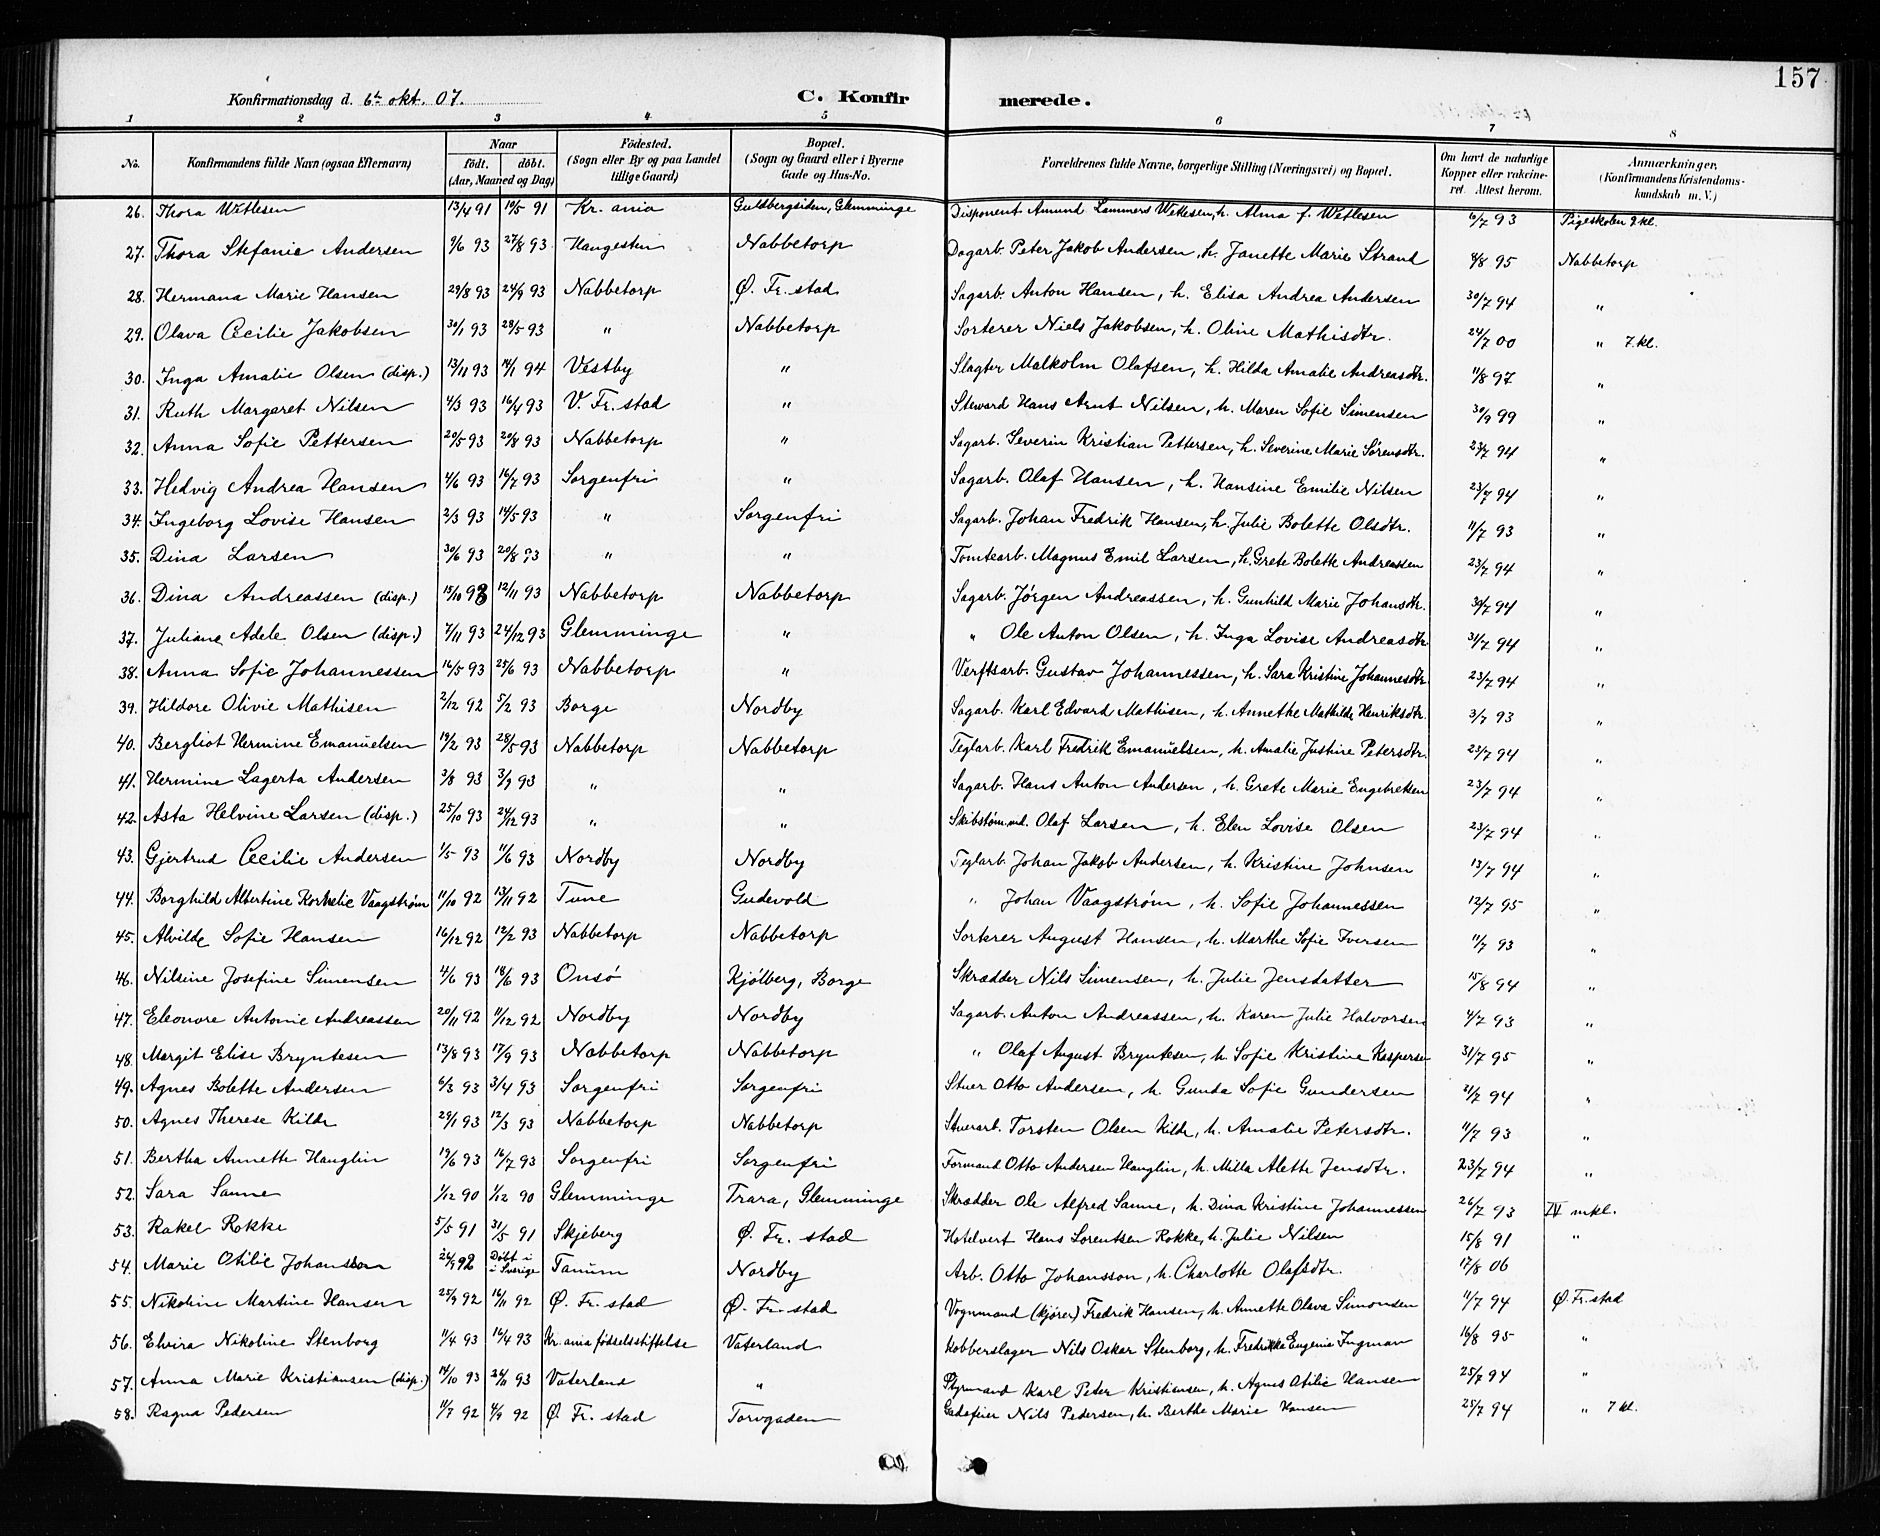 157
Konfirmationsdag d. 6te okt. 07. C. Konfirmerede.
1 2 3 4. 5 6 7 8
No. Konfirmandens fulde Navn (ogsaa Efternavn) Naar født. døbt. (Aar, Maaned og Dag) Fødested. (Sogn eller By og paa Landet tillige Gaard) Bopæl. (Sogn og Gaard eller i Byerne Gade og Hus-No. Forældrenes fulde Navne, borgerlige Stilling (Næringsvei) og Bopæl. Om havt de naturlige Kopper eller vakcineret. Attest herom. Anmærkninger, (Konfirmandens Kristendomskundskab m. V.)
26. Thora Wetlesen 13/4 91 10/5 91 Kr. ania Guldbergsiden, Glemminge Disponent Amund Lammers Wetlesen, h. Alma f. Wetlesen 6/7 93 Pigeskolen 2 kl.
27. Thora Stefanie Andersen 9/6 93 27/8 93 Haugesten Nabbetorp Dagarb. Peter Jakob Andersen, h. Janette Marie Strand 8/8 95 Nabbetorp
28. Hermana Marie Hansen 29/8 93 24/9 93 Nabbetorp Ø. Fr. stad Sagarb. Anton Hansen, h. Elisa Andrea Andersen 30/7 94 "
29. Olava Cecilie Jakobsen 30/1 93 28/5 93 " Nabbetorp Sorterer Niels Jakobsen, h. Oline Mathisdtr. 24/7 00 " 7. kl.
30. Inga Amalie Olsen (disp.) 13/11 93 14/1 94 Vestby " Slagter Malkolm Olafsen, h. Hilda Amalie Andreasdtr. 11/8 97 "
31. Ruth Margaret Nilsen 4/3 93 16/4 93 V. Fr. stad " Steward Hans Arnt Nilsen, h. Maren Sofie Simensen 30/9 99 "
32. Anna Sofie Pettersen 20/5 93 20/8 93 Nabbetorp " Sagarb. Severin Kristian Pettersen, h. Severine Marie Sørensdtr. 23/7 94 "
33. Hedvig Andrea Hansen 4/6 93 16/7 93 Sorgenfri " Sagarb. Olaf Hansen, h. Hansine Emilie Nilsen 23/7 94 "
34. Ingeborg Lovise Hansen 2/3 93 14/5 93 " Sorgenfri Sagarb. Johan Fredrik Hansen, h. Julie Bolette Olsdtr. 11/7 93 "
35. Dina Larsen 30/6 93 20/8 93 " " Tomtearb. Magnus Emil Larsen, h. Grete Bolette Andreassen 23/7 94 "
36. Dina Andreassen (disp.) 15/10 93 12/11 93 Nabbetorp Nabbetorp Sagarb. Jørgen Andreassen, h. Gunhild Marie Johansdtr. 30/7 94 "
37. Juliane Adele Olsen (disp.) 7/11 93 24/12 93 Glemminge " " Ole Anton Olsen, h. Inga Lovise Andreasdtr 31/7 94 "
38. Anna Sofie Johannessen 16/5 93 25/6 93 Nabbetorp " Verftsarb. Gustav Johannessen, h. Sara Kristine Johannesdtr. 23/7 94 "
39. Hildore Olivie Mathisen 2/12 92 5/2 93 Borge Nordby Sagarb. Karl Edvard Mathisen, h. Annethe Mathilde Henriksdtr. 3/7 93 "
40. Bergliot Hermine Emanuelsen 19/2 93 28/5 93 Nabbetorp Nabbetorp Teglarb. Karl Fredrik Emanuelsen, h. Amalie Justine Petersdtr. 23/7 94 "
41. Hermine Lagerta Andersen 3/8 93 3/9 93 " " Sagarb. Hans Anton Andersen, h. Grete Marie Engebretsen 23/7 94 "
42. Asta Helvine Larsen (disp.) 25/10 93 24/12 93 " " Skibstøm.md. Olaf Larsen, h. Elen Lovise Olsen 23/7 94 "
43. Gjertrud Cecilie Andersen 1/5 93 11/6 93 Nordby Nordby Teglarb. Johan Jakob Andersen, h. Kristine Johnsen 13/7 94 "
44. Borghild Albertine Kornelie Vaagstrøm 11/10 92 13/11 92 Tune Gudevold " Johan Vaagstrøm, h. Sofie Johannessen 12/7 95 "
45. Alvilde Sofie Hansen 16/12 92 12/2 93 Nabbetorp Nabbetorp Sorterer August Hansen, h. Marthe Sofie Iversen 11/7 93 "
46. Nilsine Josefine Simensen 4/6 93 18/6 93 Onsø Kjølberg, Borge Skrædder Nils Simensen, h. Julie Jensdatter 15/8 94 "
47. Eleonore Antonie Andreassen 20/11 92 11/12 92 Nordby Nordby Sagarb. Anton Andreassen, h. Karen Julie Halvorsen 4/7 93 "
48. Margit Elise Bryntesen 13/8 93 17/9 93 Nabbetorp Nabbetorp " Olaf August Bryntesen, h. Sofie Kristine Kaspersen 31/7 95 "
49. Agnes Bolette Andersen 6/3 93 3/4 93 Sorgenfri Sorgenfri Stuer Otto Andersen, h. Gunda Sofie Gundersen 21/7 94 "
50. Agnes Therese Kilde 29/1 93 12/3 93 Nabbetorp Nabbetorp Stuerarb. Torsten Olsen Kilde, h. Amalie Petersdtr. 11/7 93 "
51. Bertha Annette Hauglin 19/6 93 16/7 93 Sorgenfri Sorgenfri Formand Otto Andersen Hauglin, h. Milla Alette Jensdtr. 23/7 94 "
52. Sara Sanne 1/12 90 1/12 90 Glemminge Trara, Glemminge Skrædder Ole Alfred Sanne, h. Dina Kristine Johannessen 26/7 93 IV mkl.
53. Rakel Rokke 5/5 91 31/5 91 Skjeberg Ø. Fr. stad Hotelvert Hans Lorentsen Rokke, h. Julie Nilsen 15/8 91 "
54. Marie Otilie Johansson 26/9 92 Døbt i Sverige Tanum Nordby Arb. Otto Johansson, h. Charlotte Olafsdtr. 17/8 06
55. Nikoline Martine Hansen 25/9 92 16/11 92 Ø. Fr. stad Ø. Fr. stad Vognmand (kjører) Fredrik Hansen, h. Annette Olava Simonsen 11/7 94 Ø. Fr. stad
56. Elvira Nikoline Stenborg 11/4 93 16/4 93 Kr. ania fødselsstiftelse Vaterland Kobberslager Nils Oskar Stenborg, h. Fredrikke Eugenie Ingman 16/8 95 "
57. Anna Marie Kristiansen (disp.) 14/10 93 26/11 93 Vaterland " Styrmand Karl Peter Kristiansen, h. Agnes Otilie Hansen 25/7 94 "
58. Ragna Pedersen 11/7 92 4/9 92 Ø. Fr. stad Torvgaden Gadefeier Nils Pedersen, h. Berthe Marie Hansen 25/7 94 " 7 kl.